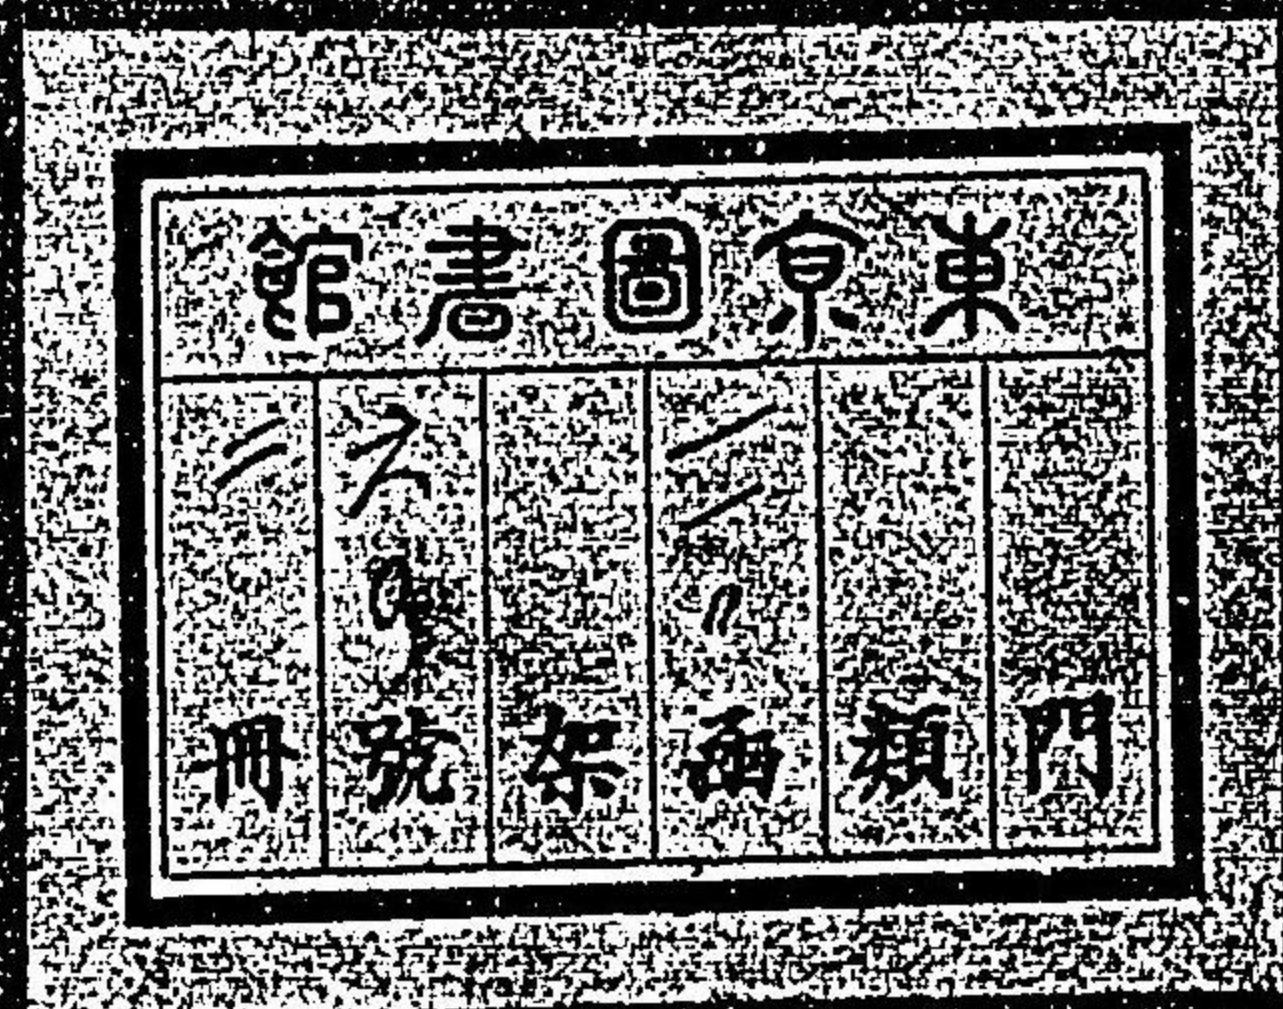 東京圖書館
門
類
函
架
號
二冊